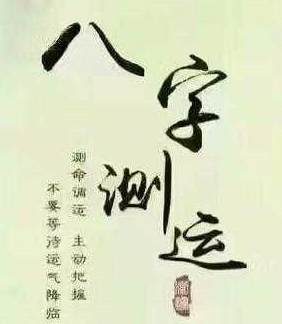 八字测运
测命调运 主动把握
不要等待运气降临